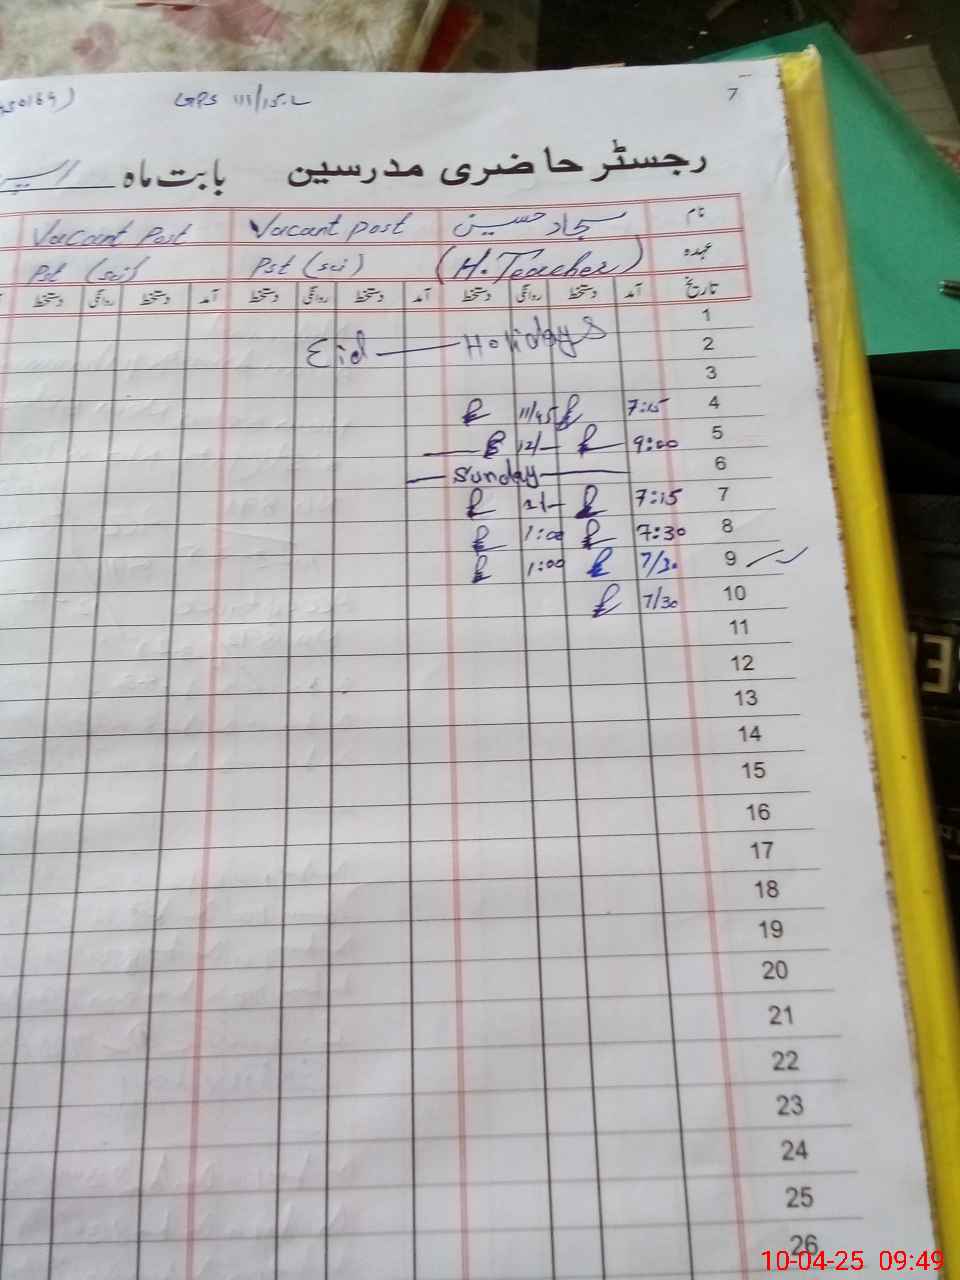 GPS 111/15.L
7
رجسٹر حاضری مدرسین بابت ماہ
نام سجاد حسین Vacant post Vacant Post
عہدہ (H. Teacher) Pst (sci) Pst (sci)
تاریخ آمد دستخط روانگی دستخط آمد دستخط روانگی دستخط آمد دستخط روانگی دستخط
1
2 Eid — Holidays
3
4 7:15 11/45
5 9:00 12/-
6 Sunday
7 7:15
8 7:30 1:00
9 7/30 1:00
10 7/30
11
12
13
14
15
16
17
18
19
20
21
22
23
24
25
26
10-04-25 09:49